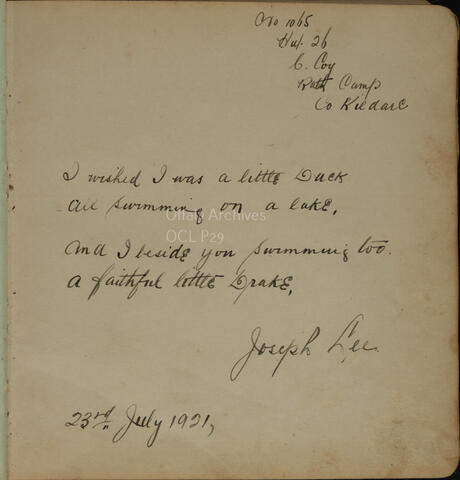 No 1065
Hut. 26
C. Coy
Rath Camp
Co Kildare
I wished I was a little Duck
all swimming on a lake,
Offaly Archives
OCL P29
and I beside you swimming too.
a faithful little Drake,
Joseph Lee
23rd July 1921,